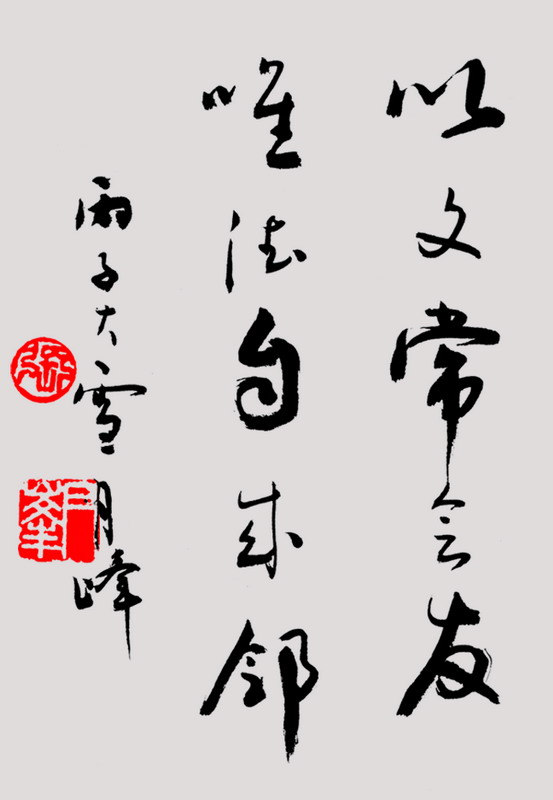 以文常会友
唯德自成邻
丙子大雪 月峰
张